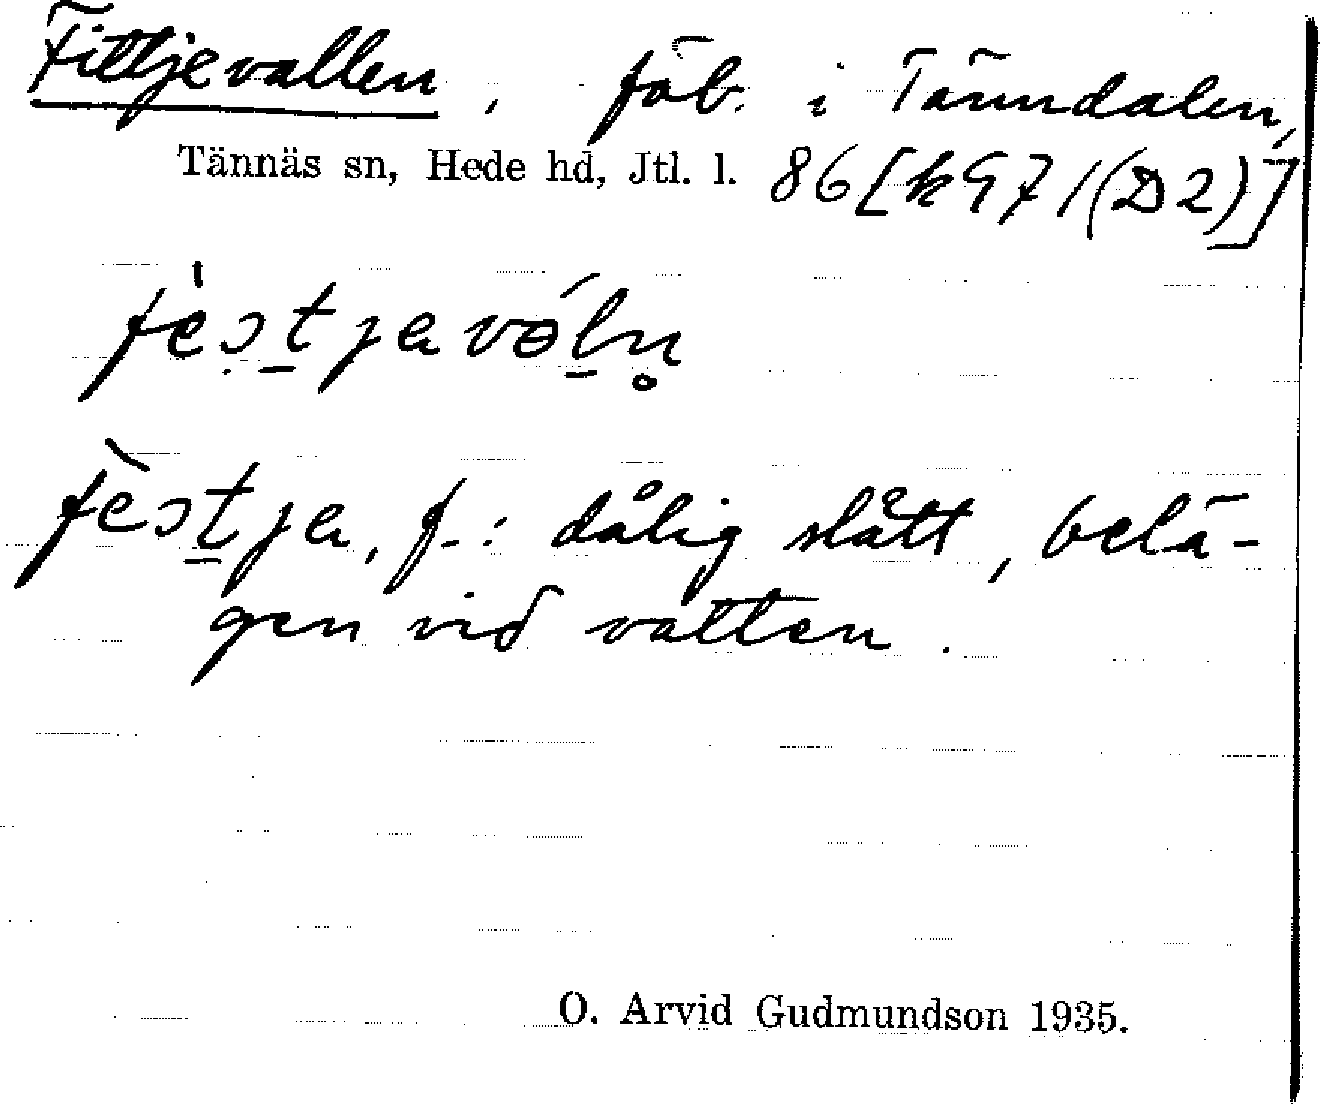 Fittjevallen, fäb. i Tänndalen,
Tännäs sn, Hede hd, Jtl. l. 86 [k 971 (D2)]
dålig slått, belä-
gen vid vatten.
O. Arvid Gudmundson 1935.